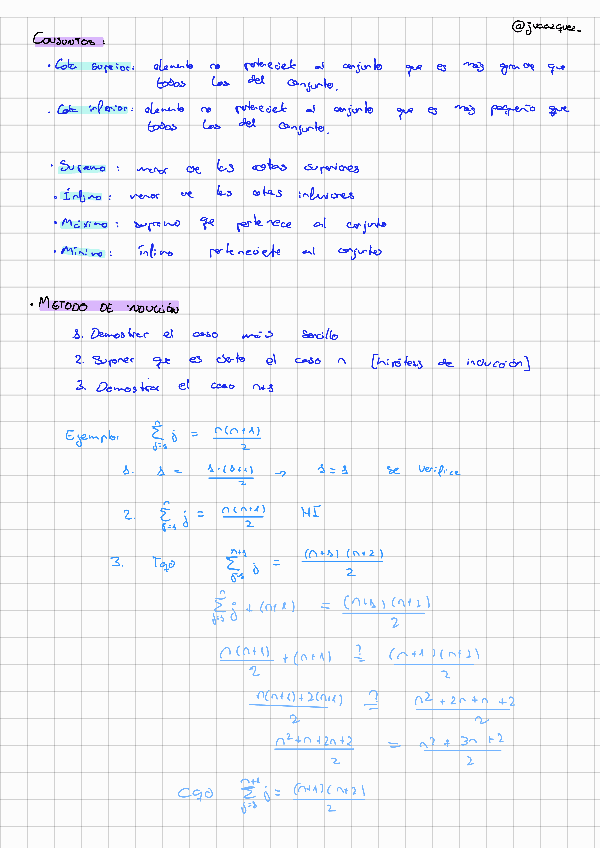 @jvaazquez_
CONJUNTOS:
· Cota superior: elemento no perteneciete al conjunto que es más grande que
todos los del conjunto.
· Cota inferior: elemento no perteneciete al conjunto que es más pequeño que
todos los del conjunto.
· Supremo: menor de las cotas superiores
· Ínfimo: menor de las cotas inferiores
· Máximo: supremo que pertenece al conjunto
· Mínimo: ínfimo perteneciete al conjunto
· METODO DE INDUCCIÓN
1. Demostrar el caso más sencillo
2. Suponer que es cierto el caso n [hipótesis de inducción]
3. Demostrar el caso n+1
Ejemplo: ∑_{j=1}^{n} j = n(n+1)/2
1. 1 = 1·(1+1)/2 → 1=1 se verifica
2. ∑_{j=1}^{n} j = n(n+1)/2 HI
3. Tqd ∑_{j=1}^{n+1} j = (n+1)(n+2)/2
∑_{j=1}^{n} j + (n+1) = (n+1)(n+2)/2
n(n+1)/2 + (n+1) ?= (n+1)(n+2)/2
n(n+1)+2(n+1)/2 ?= n²+2n+n+2/2
n²+n+2n+2/2 = n²+3n+2/2
CQD ∑_{j=1}^{n+1} j = (n+1)(n+2)/2